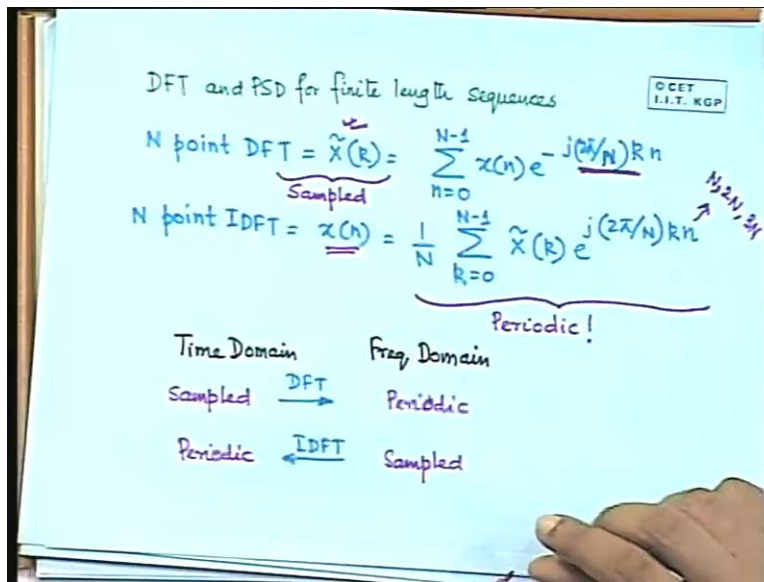 DFT and PSD for finite length sequences
© CET
I.I.T. KGP
N point DFT = X̃(k) = Σ_{n=0}^{N-1} x(n) e^{-j(2π/N)kn}
Sampled
N, 2N, 3N
N point IDFT = x(n) = 1/N Σ_{k=0}^{N-1} X̃(k) e^{j(2π/N)kn}
Periodic!
Time Domain Freq Domain
Sampled DFT → Periodic
Periodic IDFT ← Sampled